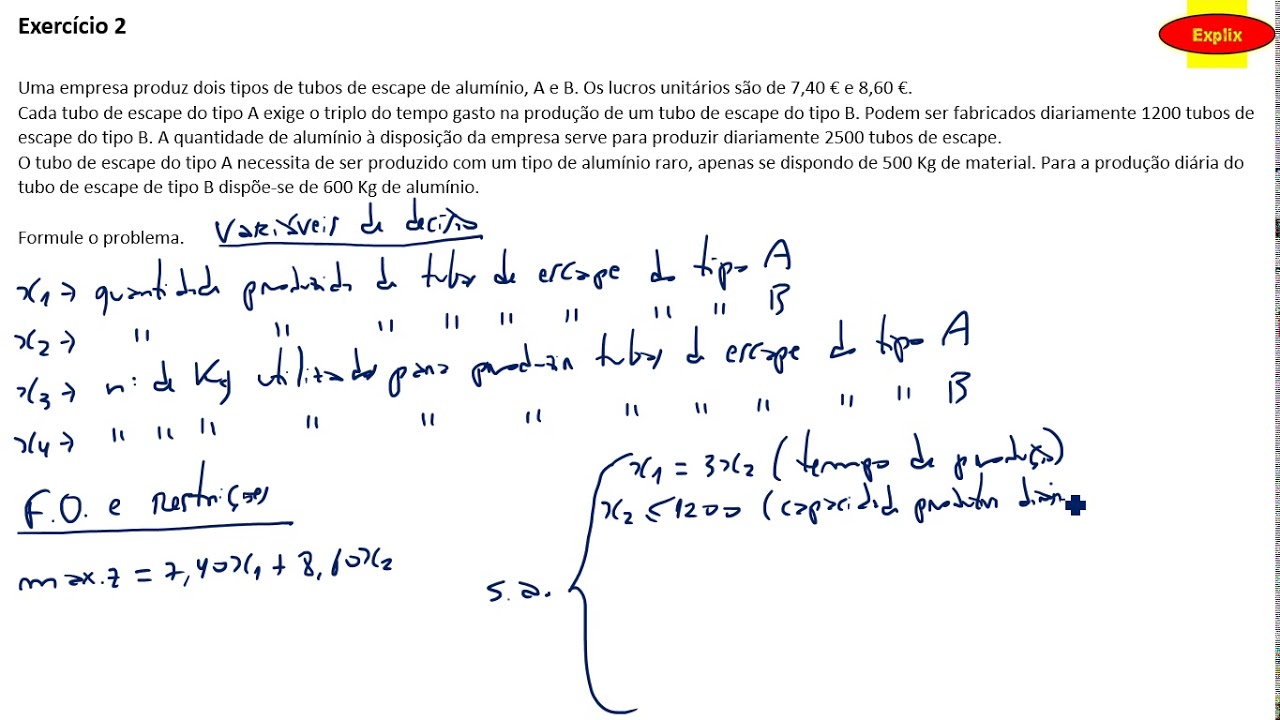 Exercício 2
Explix
Uma empresa produz dois tipos de tubos de escape de alumínio, A e B. Os lucros unitários são de 7,40 € e 8,60 €.
Cada tubo de escape do tipo A exige o triplo do tempo gasto na produção de um tubo de escape do tipo B. Podem ser fabricados diariamente 1200 tubos de
escape do tipo B. A quantidade de alumínio à disposição da empresa serve para produzir diariamente 2500 tubos de escape.
O tubo de escape do tipo A necessita de ser produzido com um tipo de alumínio raro, apenas se dispondo de 500 Kg de material. Para a produção diária do
tubo de escape de tipo B dispõe-se de 600 Kg de alumínio.
Formule o problema. Variáveis de decisão
x1 → quantidade produzida de tubos de escape do tipo A
x2 → " " " " " " " " B
x3 → nº de Kg utilizados para produzir tubos de escape do tipo A
x4 → " " " " " " " " " " " B
F.O. e Restrições
max.z = 7,40x1 + 8,60x2
s.a.
x1 = 3x2 (tempo de produção)
x2 ≤ 1200 (capacidade produtiva